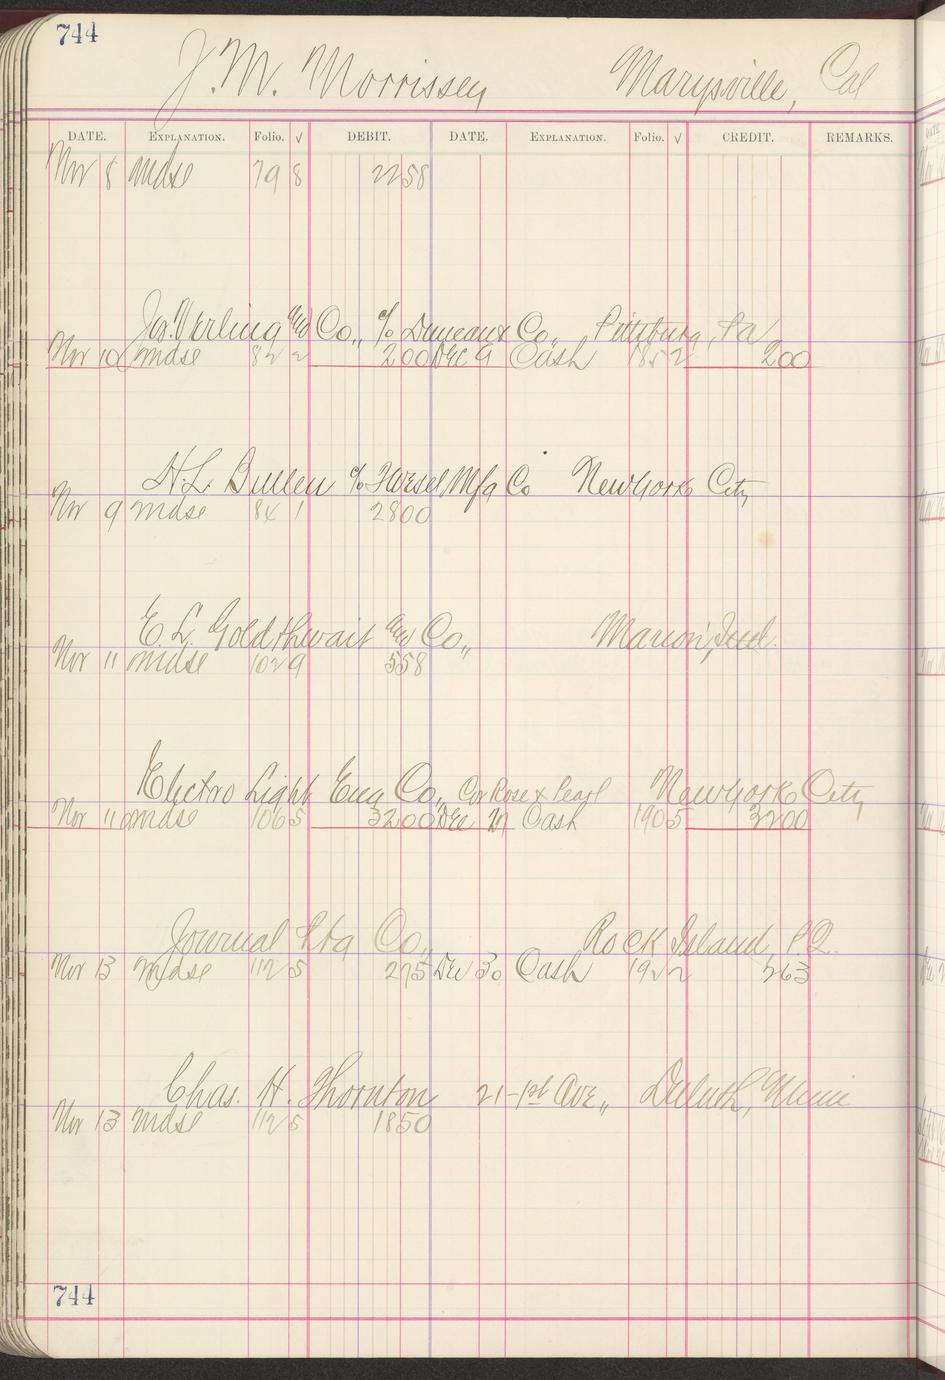 744
J. M. Morrissey Marysville, Cal
DATE. EXPLANATION. Folio. √ DEBIT. DATE. EXPLANATION. Folio. √ CREDIT. REMARKS.
Nov 8 Mdse 79 8 2258
Jas. Verling and Co., c/o Duncan & Co., Pittsburg, Pa
Nov 10 Mdse 82 2 200 Dec 9 Cash 185 2 200
H. L. Bullen c/o F Wesel Mfg Co New York City
Nov 9 Mdse 84 1 2800
E. L. Goldthwait and Co., Marion, Ind.
Nov 11 Mdse 102 9 558
Electro Light Eng Co., Cor Rose & Pearl New York City
Nov 11 Mdse 106 5 3200 Dec Cash 190 5 3200
Journal Ptg Co., Rock Island, P.Q.
Nov 13 Mdse 112 5 275 Dec 30 Cash 192 2 263
Chas. H. Thornton 21-1st Ave., Duluth, Minn
Nov 13 Mdse 112 5 1850
744